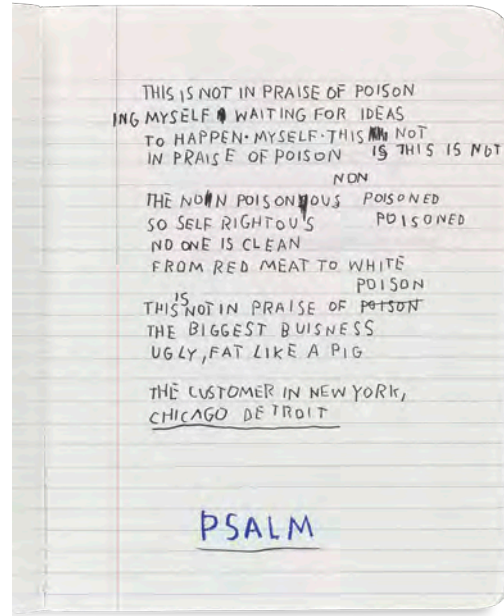 THIS IS NOT IN PRAISE OF POISON
ING MYSELF WAITING FOR IDEAS
TO HAPPEN·MYSELF·THIS NOT
IN PRAISE OF POISON IS THIS IS NOT
NON
THE NON POISONOUS POISONED
SO SELF RIGHTOUS POISONED
NO ONE IS CLEAN
FROM RED MEAT TO WHITE
POISON
IS
THIS NOT IN PRAISE OF POISON
THE BIGGEST BUISNESS
UGLY, FAT LIKE A PIG
THE CUSTOMER IN NEW YORK,
CHICAGO DETROIT
PSALM